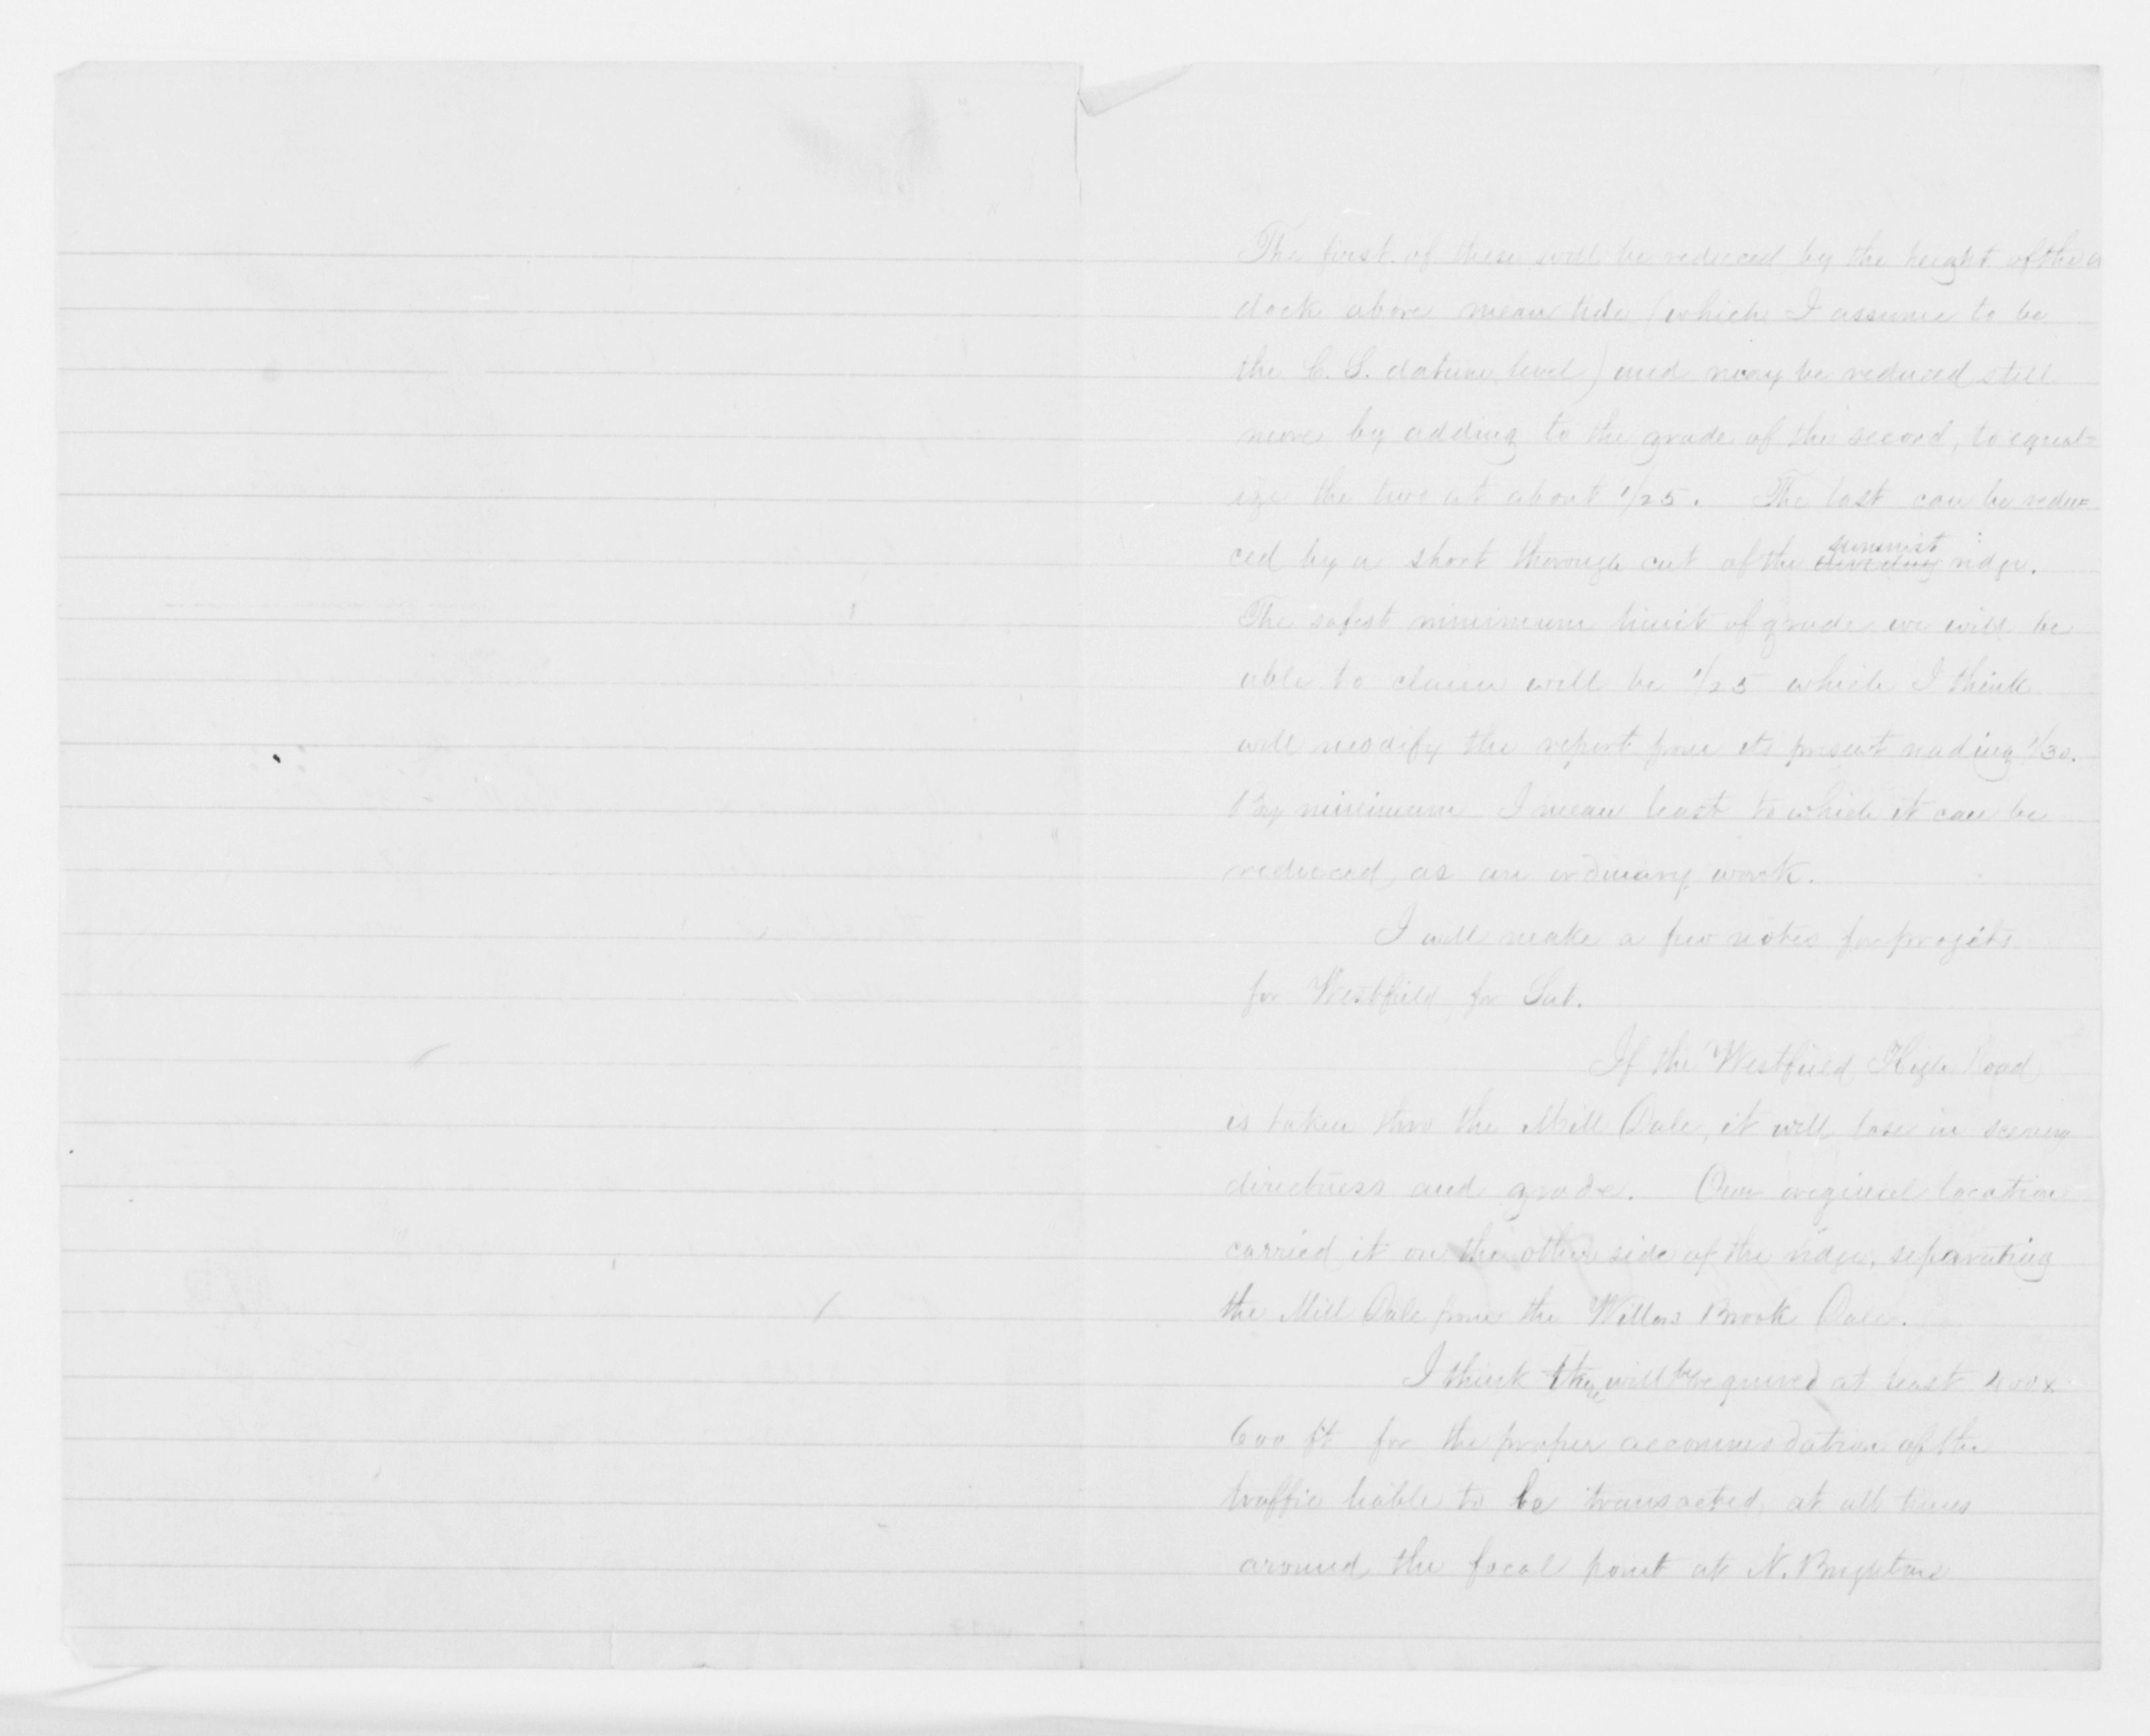 The first of these will be reduced by the height of the
dock above mean tide (which I assume to be
the C. S. datum level) and may be reduced still
more by adding to the grade of the second, to equal=
ize the two at about 1/25. The last can be redu=
ced by a short thorough cut of the dividing summit ridge.
The safest minimum limit of grade we will be
able to claim will be 1/25 which I think
will modify the report from its present reading 1/30.
By minimum I mean least to which it can be
reduced as an ordinary work.
I will make a few notes for projets
for Westfield for Sat.
If the Westfield High Road
is taken thro the Mill Dale, it will lose in scenery
directness and grade. Our original location
carried it on the other side of the ridge, separating
the Mill Dale from the Willow Brook Dale.
I think there will be required at least 400 x
600 ft for the proper accommodation of the
traffic liable to be transacted at all times
around the focal point at N. Brighton